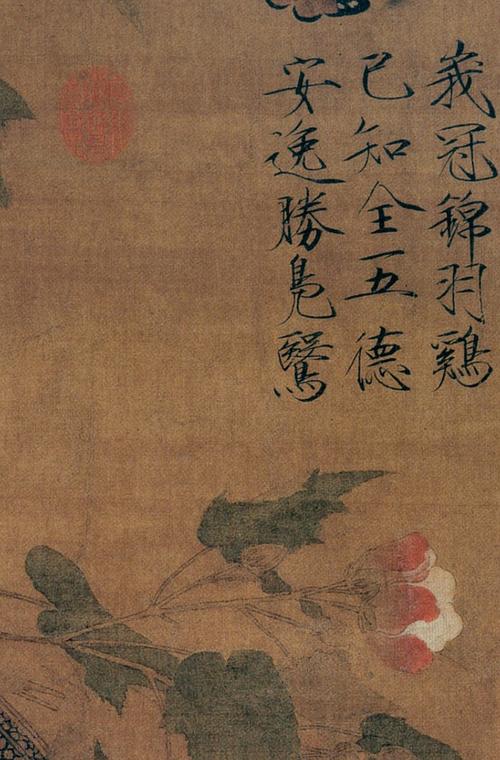 峩冠錦羽鷄
已知全五德
安逸勝鳧鷖